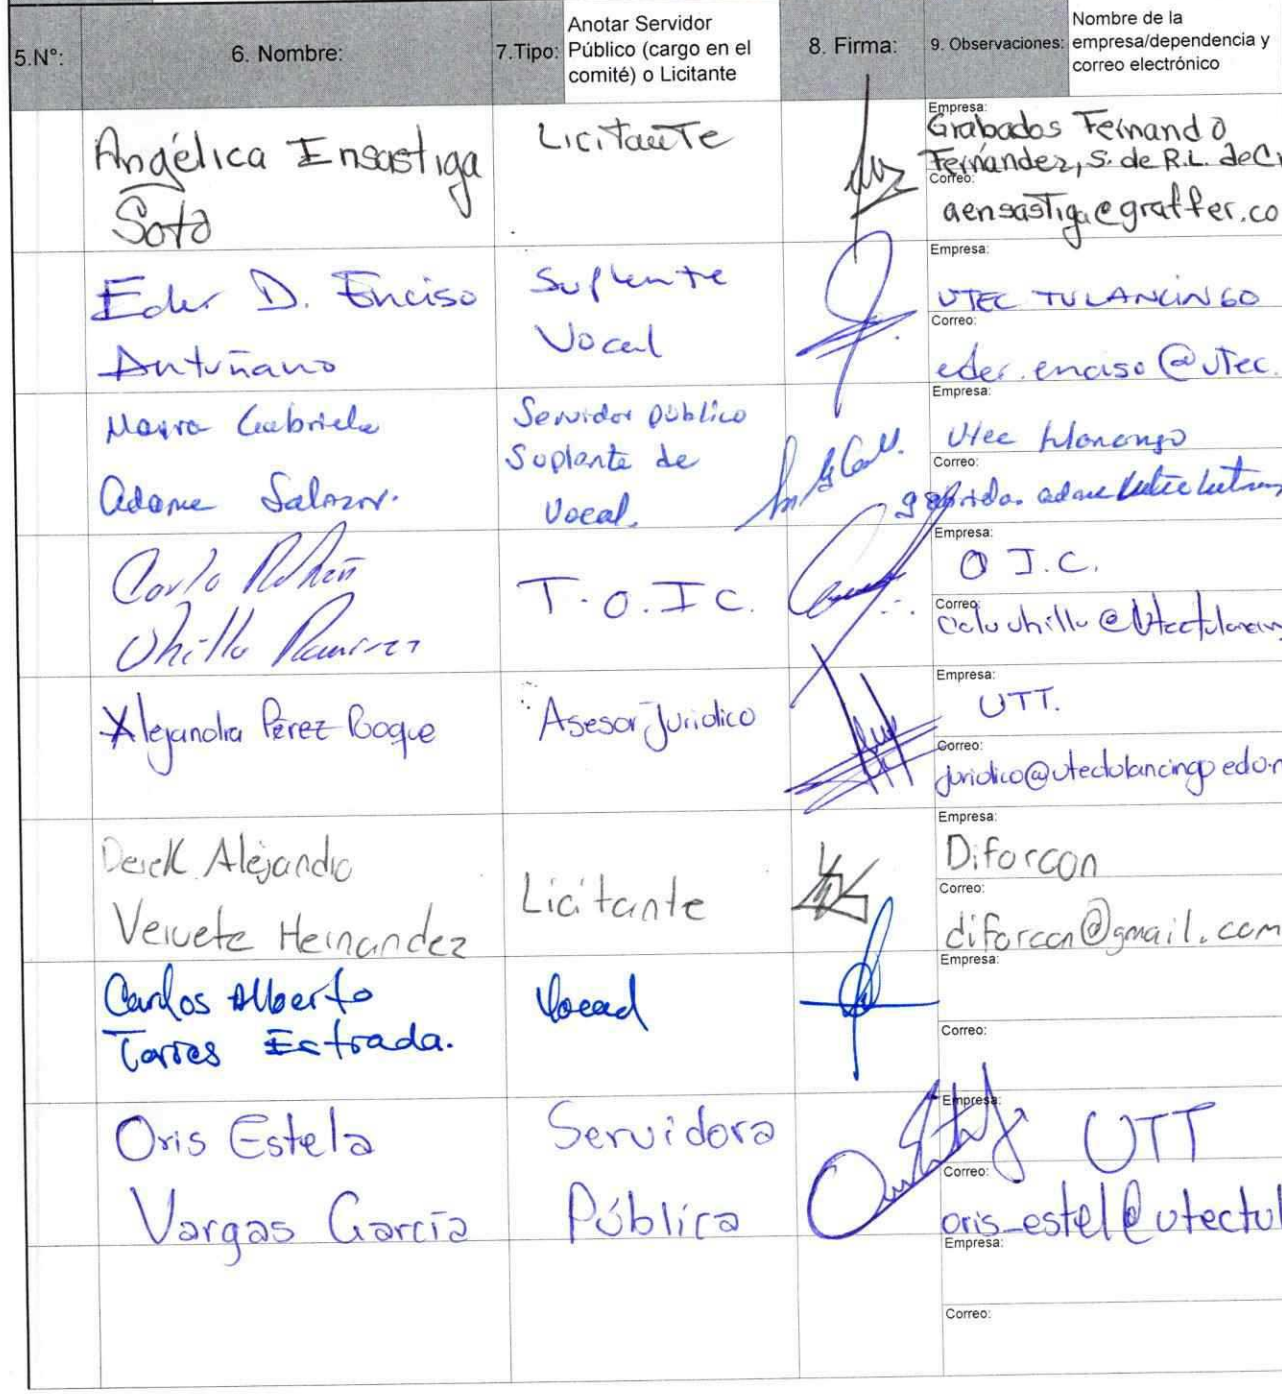 5.N°:
6. Nombre:
7.Tipo:
Anotar Servidor
Público (cargo en el
comité) o Licitante
8. Firma:
9. Observaciones:
Nombre de la
empresa/dependencia y
correo electrónico
Angélica Ensastiga
Soto
Licitante
Empresa:
Grabados Fernando
Fernández, S. de R.L. de C
Correo:
aensastiga@graffer.co
Eder D. Enciso
Antuñano
Suplente
Vocal
Empresa:
UTEC TULANCINGO
Correo:
eder.enciso@utec.
Gabriela
Adame Salazar.
Servidor público
Suplante de
Vocal.
Empresa:
Utec
Correo:
Carlo
Ramirez
T.O.I C.
Empresa:
O I.C.
Correo:
Alejandra Pérez Roque
Asesor Juridico
Empresa:
UTT.
Correo:
juridico@utectulancingo.edu.
Derek Alejandro
Hernandez
Licitante
Empresa:
Diforcon
Correo:
diforcon@gmail.com
Carlos Alberto
Torres Estrada.
Vocal
Empresa:
Correo:
Oris Estela
Vargas García
Servidora
Pública
Empresa:
UTT
Correo:
oris_estel@utectul
Empresa:
Correo: